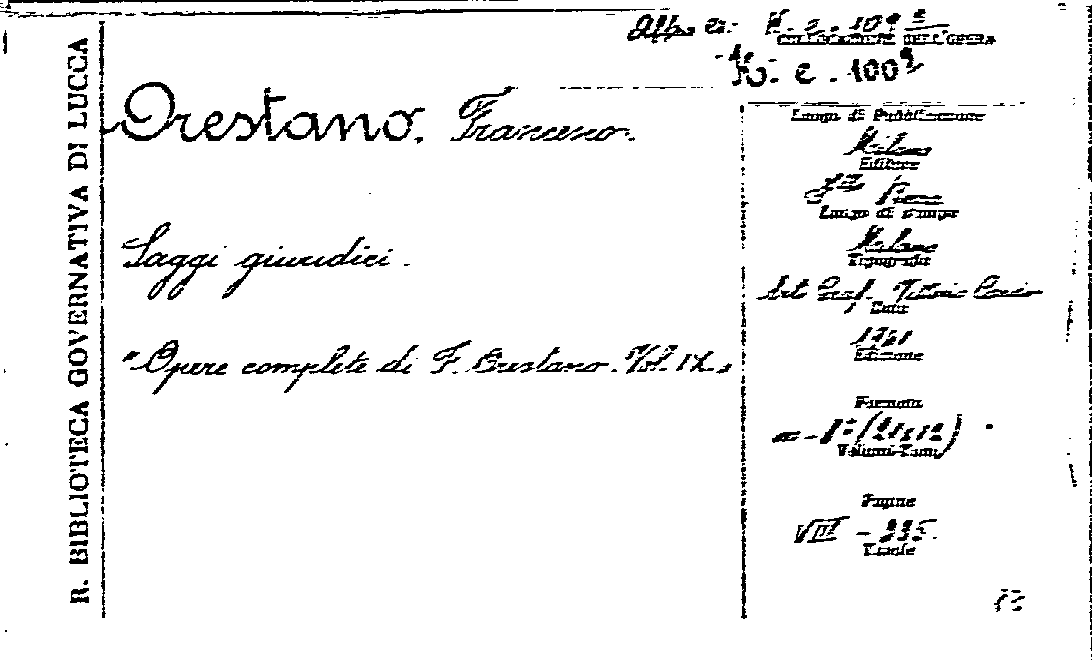 R. BIBLIOTECA GOVERNATIVA DI LUCCA
Altro es:
COLLOCAZIONE DELL'OPERA
K. c. 100
Orestano. Francesco.
Saggi giuridici.
"Opere complete di F. Orestano. Vol. IX.„
Luogo di Pubblicazione
Milano
Editore
F.lli Bocca
Luogo di stampa
Milano
Tipografia
Art. Graf.
Data
1941
Edizione
Formato
Volumi-Tomi
Pagine
VIII - 235.
Tavole